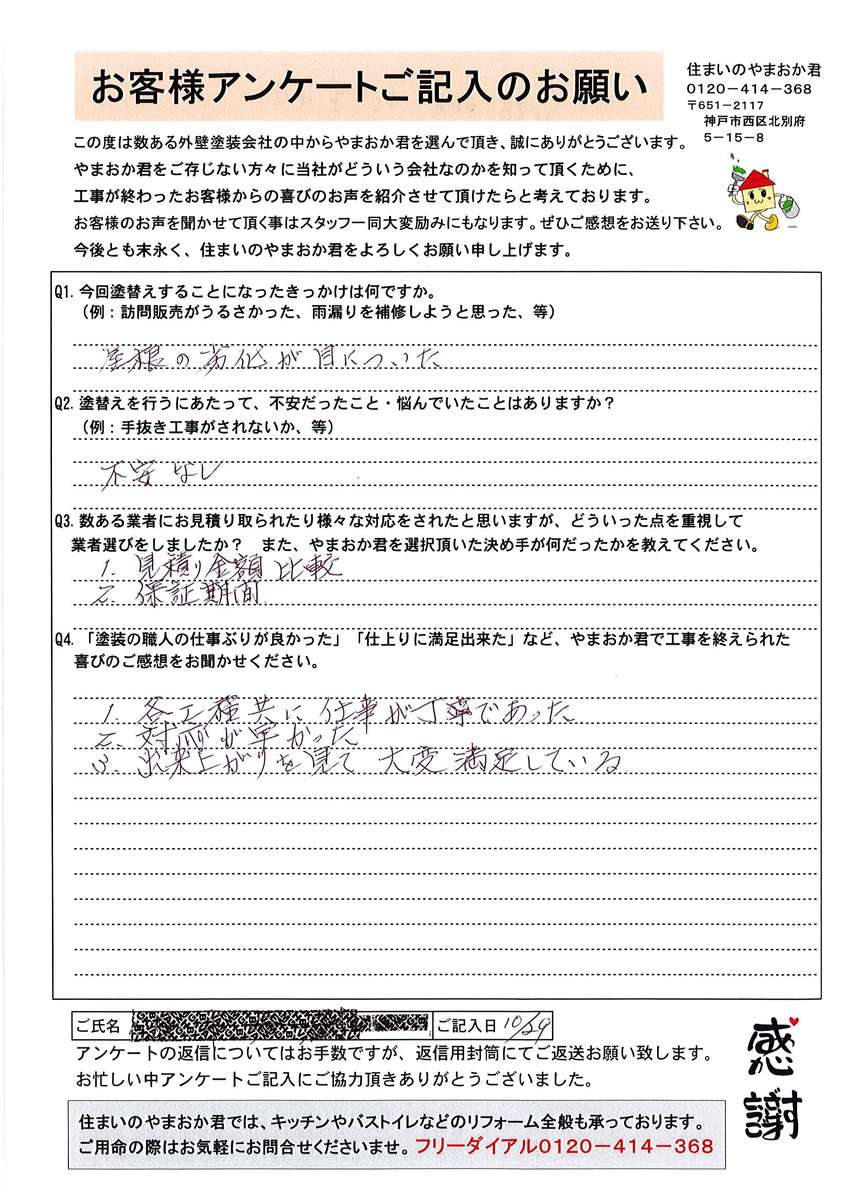 お客様アンケートご記入のお願い
住まいのやまおか君
0120-414-368
〒651-2117
神戸市西区北別府
5-15-8
この度は数ある外壁塗装会社の中からやまおか君を選んで頂き、誠にありがとうございます。
やまおか君をご存じない方々に当社がどういう会社なのかを知って頂くために、
工事が終わったお客様からの喜びのお声を紹介させて頂けたらと考えております。
お客様のお声を聞かせて頂く事はスタッフ一同大変励みにもなります。ぜひご感想をお送り下さい。
今後とも末永く、住まいのやまおか君をよろしくお願い申し上げます。
Q1. 今回塗替えすることになったきっかけは何ですか。
（例：訪問販売がうるさかった、雨漏りを補修しようと思った、等）
屋根の劣化が目についた
Q2. 塗替えを行うにあたって、不安だったこと・悩んでいたことはありますか？
（例：手抜き工事がされないか、等）
不安なし
Q3. 数ある業者にお見積り取られたり様々な対応をされたと思いますが、どういった点を重視して
業者選びをしましたか？　また、やまおか君を選択頂いた決め手が何だったかを教えてください。
1. 見積り金額比較
2. 保証期間
Q4. 「塗装の職人の仕事ぶりが良かった」「仕上りに満足出来た」など、やまおか君で工事を終えられた
喜びのご感想をお聞かせください。
1. 各工種共に仕事が丁寧であった
2. 対応が早かった
3. 出来上がりを見て 大変満足している
ご氏名
ご記入日 10/29
アンケートの返信についてはお手数ですが、返信用封筒にてご返送お願い致します。
お忙しい中アンケートご記入にご協力頂きありがとうございました。
感謝
住まいのやまおか君では、キッチンやバストイレなどのリフォーム全般も承っております。
ご用命の際はお気軽にお問合せくださいませ。フリーダイアル0120-414-368